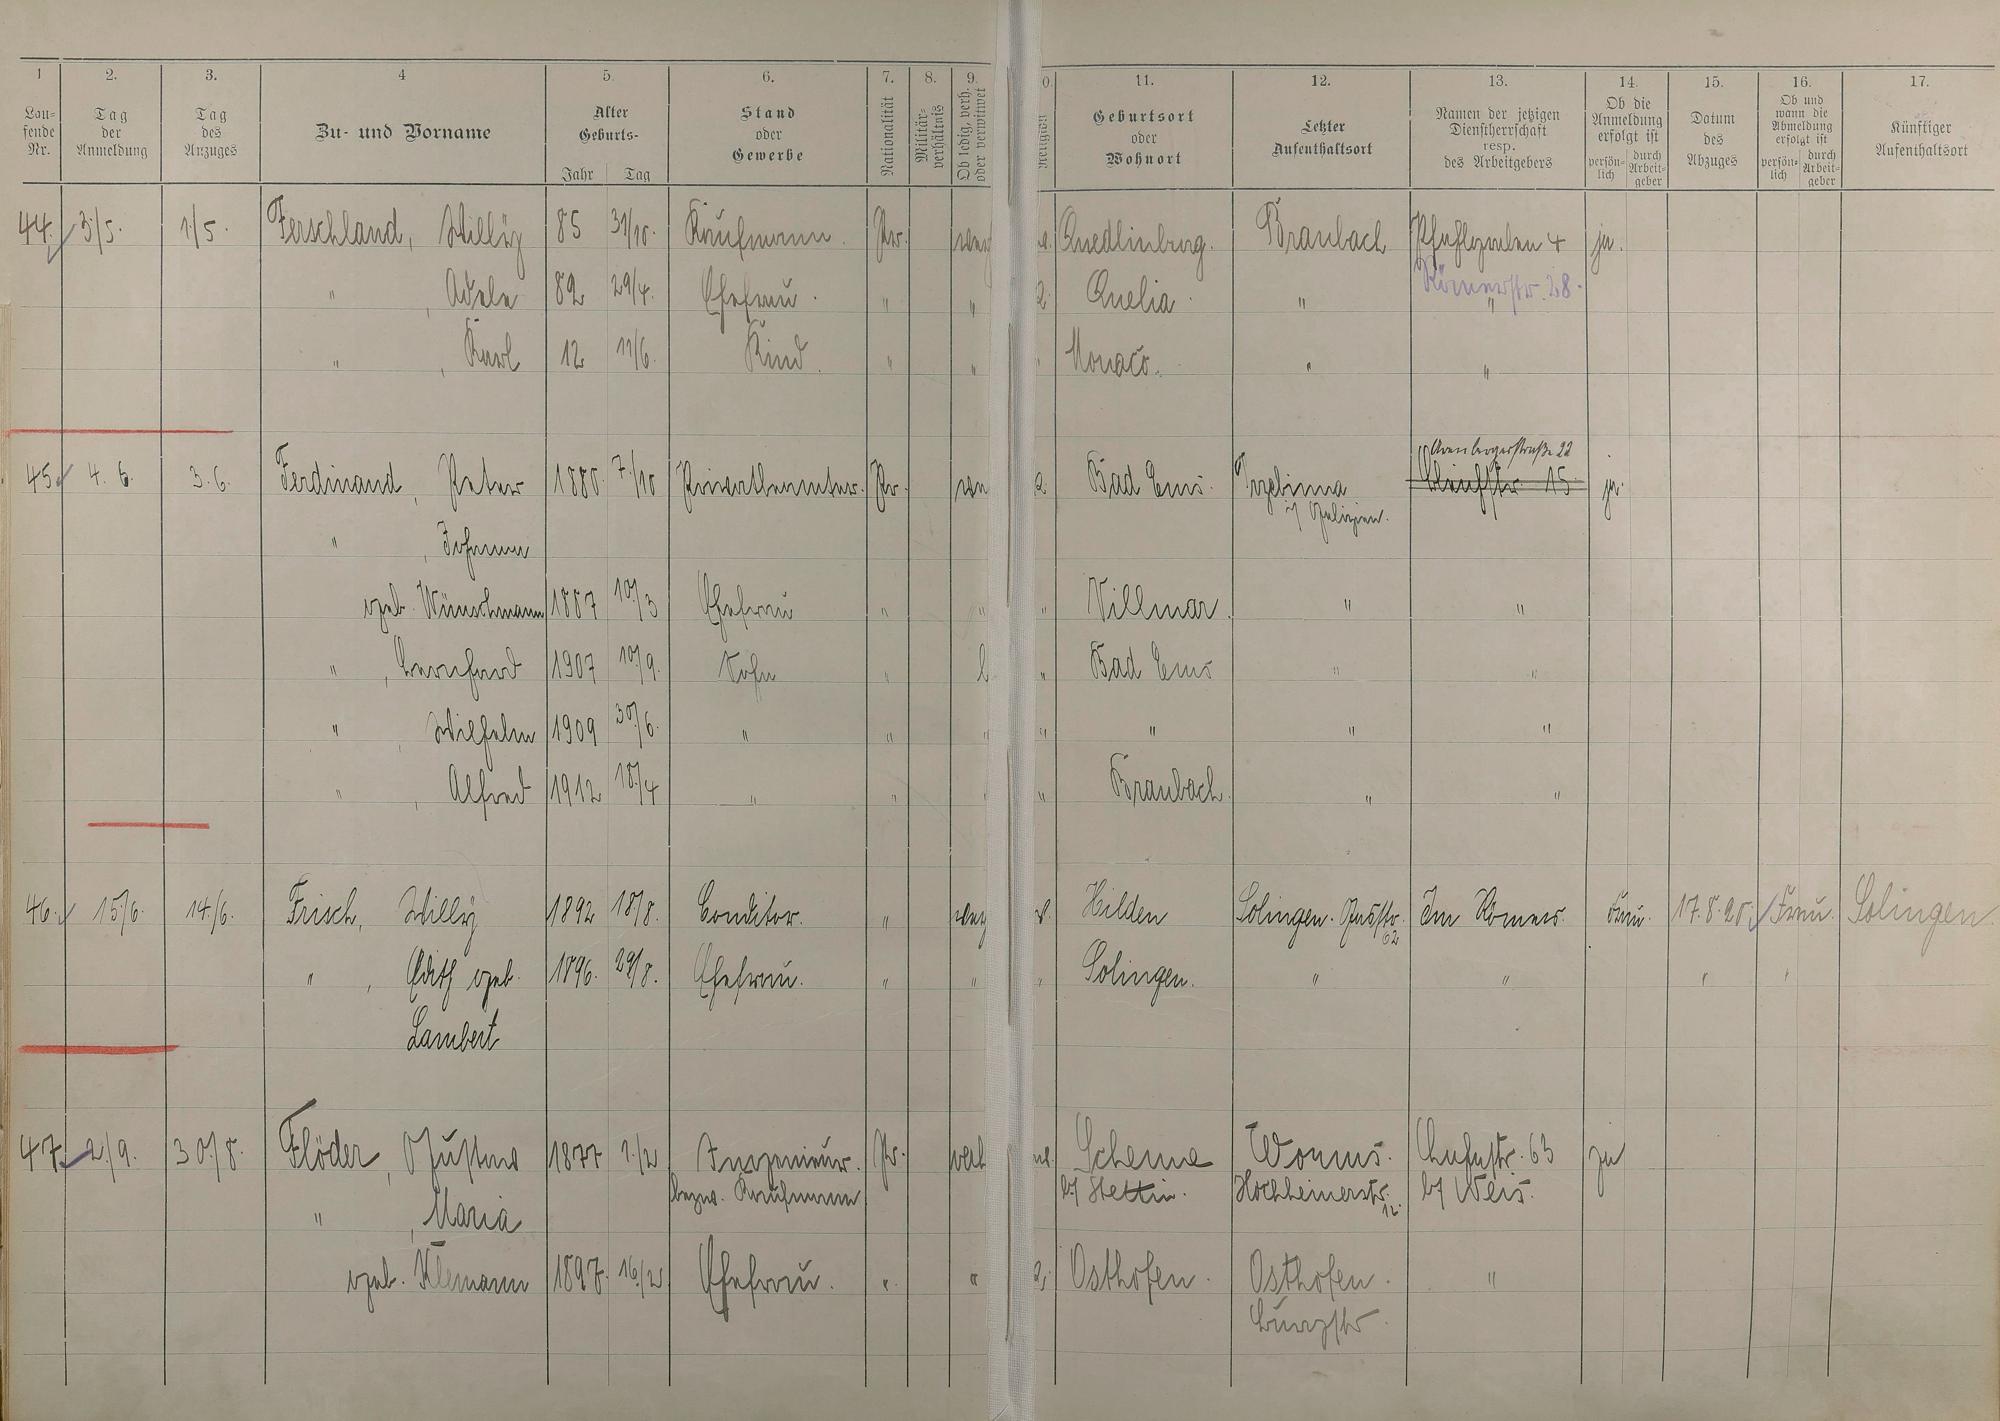 1 2. 3. 4 5. 6. 7. 8. 9. 0. 11. 12. 13. 14. 15. 16. 17.
Lau-
fende
Nr.
Tag
der
Anmeldung
Tag
des
Anzuges
Zu- und Vorname
Alter
Geburts-
Jahr Tag
Stand
oder
Gewerbe
Nationalität
Militär-
verhältnis
Ob ledig, verh.
oder verwitwet
Religion
Geburtsort
oder
Wohnort
Letzter
Aufenthaltsort
Namen der jetzigen
Dienstherrschaft
resp.
des Arbeitgebers
Ob die
Anmeldung
erfolgt ist
persön-
lich
durch
Arbeit-
geber
Datum
des
Abzuges
Ob und
wann die
Abmeldung
erfolgt ist
persön-
lich
durch
Arbeit-
geber
Künftiger
Aufenthaltsort
44. 3/5. 1/5. Ferschland, Willy 85 31/10. Kaufmann. Pr. Quedlinburg. Braubach 4 ja.
" , Adele 82 29/4. Ehefrau. " " Quelia. " "
Römerstr. 28.
" , Karl 12 11/6. Kind. " " Monaco. " "
Arenbergerstraße 22
45. 4. 6. 3. 6. Ferdinand, Peter 1880. 7./10 Privatbeamter. Pr. Bad Ems. Trzebinna 15. ja.
i/ Galizien.
" , Johanna
geb. Wünschmann 1887 10./3 Ehefrau " " " Villmar. " "
" , Bernhard 1907 10/9. Sohn " l " Bad Ems " "
" , Wilhelm 1909 30/6. " " " " " " "
" , Alfred 1912 18./4 " " " " Braubach. " "
46. 15/6. 14./6. Frisch, Willy 1892 18/8. Conditor. " Hilden Solingen. Im Römer. Frau. 17.8.20. Frau. Solingen
62
" , Edith geb. 1896. 29/8. Ehefrau. " " " Solingen. " " " "
Lambert
47. 2./9. 30./8. Flöder, Gustav 1877 1./2 Ingenieur. Pr. verh Scheune Worms. 63 ja
bezw. Kaufmann b/ Stettin. Hochheimerstr. b/ Weis.
12.
" , Maria
geb. Klemann 1897. 16./2 Ehefrau. " " Osthofen. Osthofen. "
Burgstr.